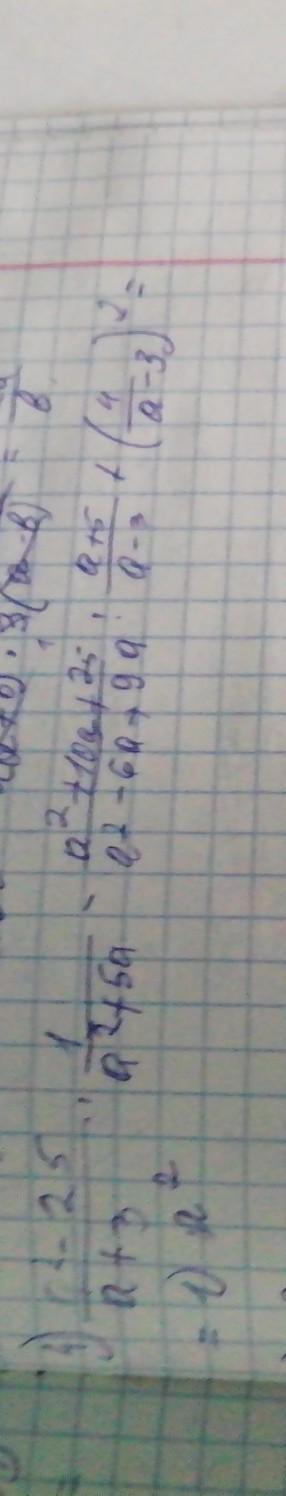 (a+b) · 3(a-b) = a/b
4) (a²-25)/(a+3) : 1/(a²+5a) - (a²+10a+25)/(a²-6a+9a) : (a+5)/(a-3) + (4/(a-3))² =
= 1) a²